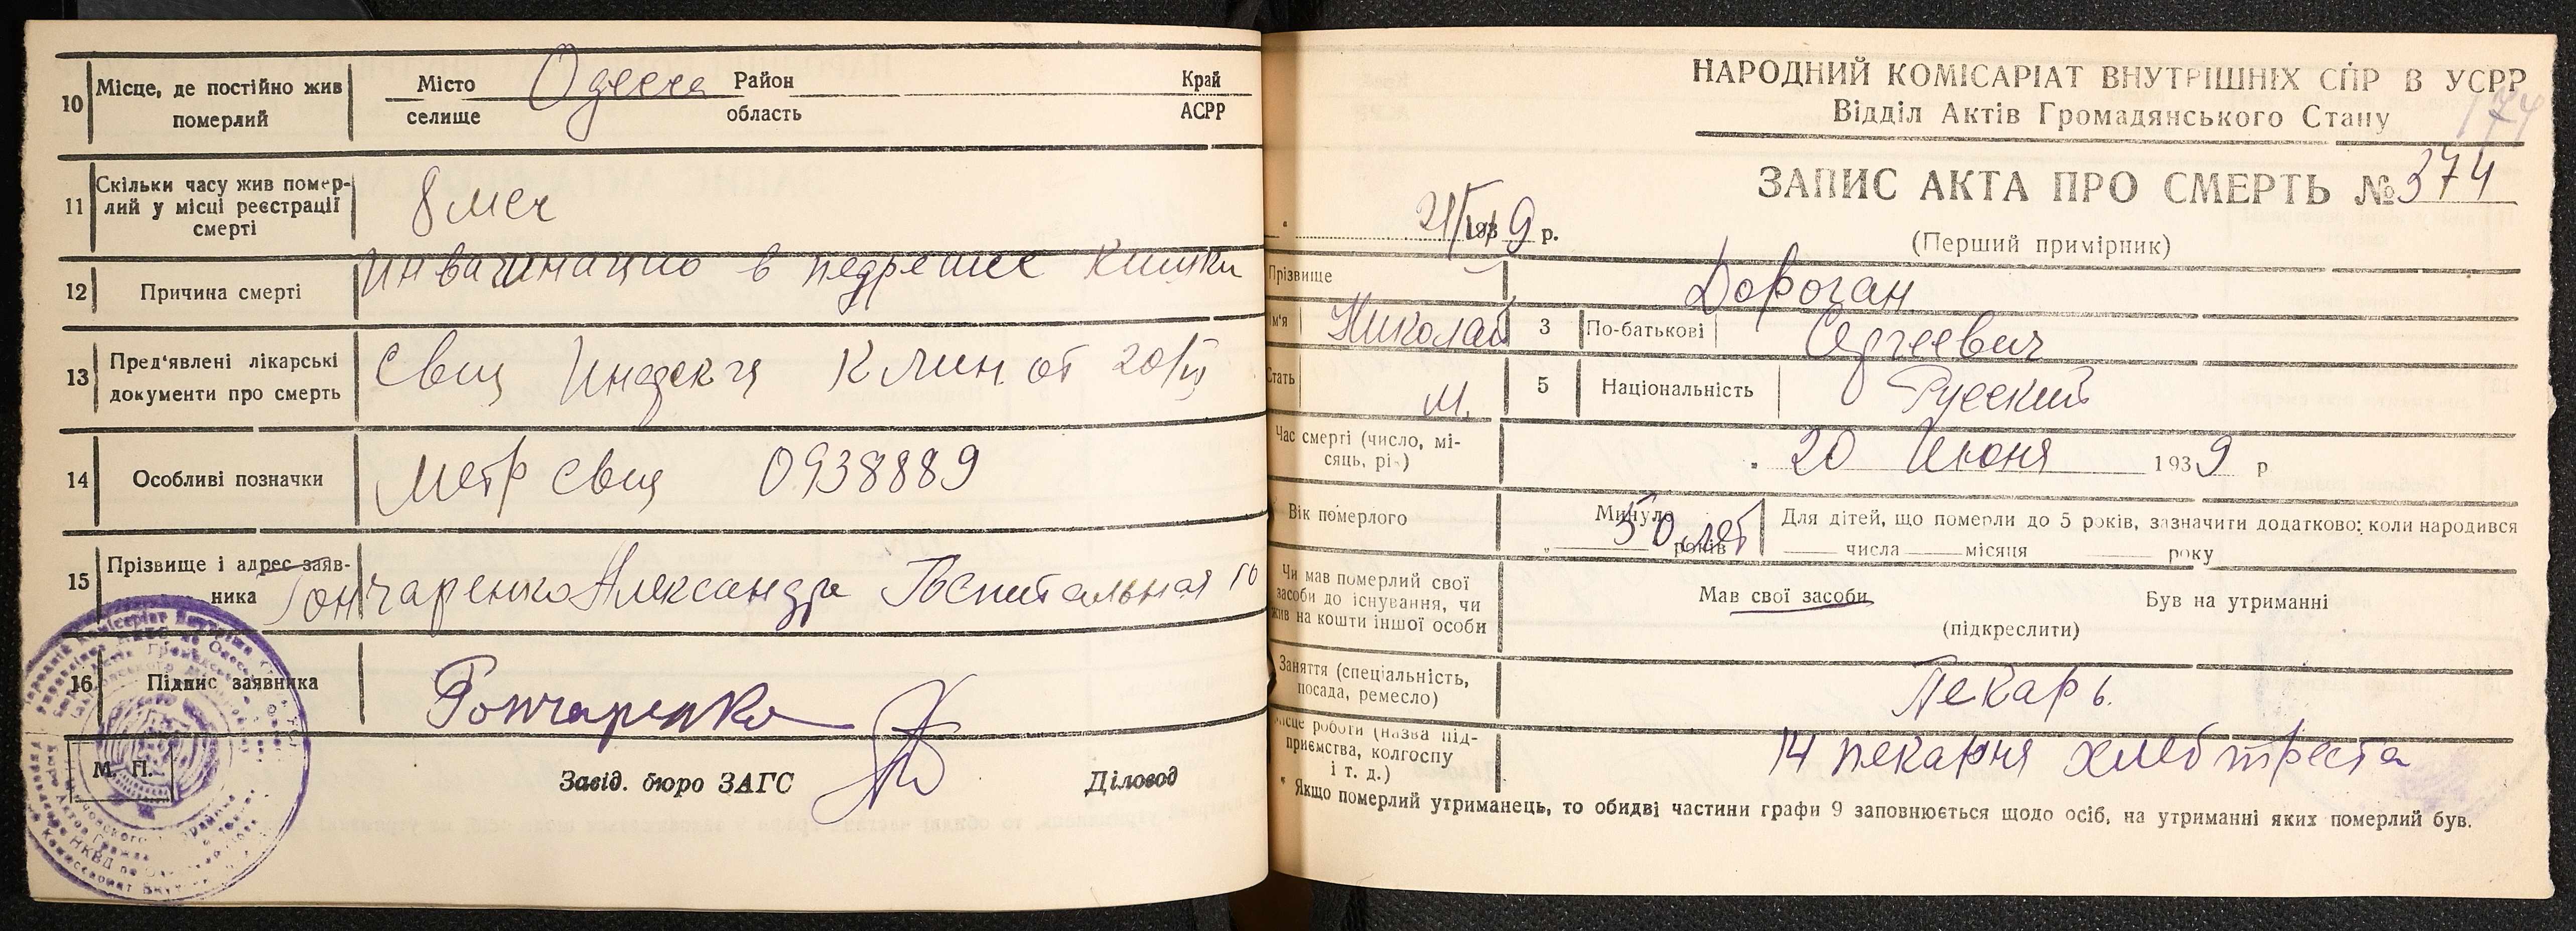 10
Місце, де постійно жив
померлий
Місто
селище
Одесса
Район
область
Край
АСРР
11
Скільки часу жив помер-
лий у місці реєстрації
смерті
8 мес
12
Причина смерті
в кишки
13
Пред'явлені лікарські
документи про смерть
Свид клин от 20/VI
14
Особливі позначки
Метр свид 0938889
15
Прізвище і адрес заяв-
ника
Гончаренко Александра Госпитальная 10
16
Підпис заявника
Гончаренко
М. П.
Завід. бюро ЗАГС
Діловод
НАРОДНИЙ КОМІСАРІАТ ВНУТРІШНІХ СПР В УСРР
Відділ Актів Громадянського Стану
174
ЗАПИС АКТА ПРО СМЕРТЬ № 374
21/VI 1939 р.
(Перший примірник)
Прізвище
Дороган
Ім'я
Николай
3
По-батькові
Сергеевич
Стать
м.
5
Національність
Русский
Час смерті (число, мі-
сяць, рік)
20 Июня 1939 р
Вік померлого
Минуло
50 лет
років
Для дітей, що померли до 5 років, зазначити додатково: коли народився
числа місяця року
Чи мав померлий свої
засоби до існування, чи
жив на кошти іншої особи
Мав свої засоби
Був на утриманні
(підкреслити)
Заняття (спеціальність,
посада, ремесло)
Пекарь.
місце роботи (назва під-
приємства, колгоспу
і т. д.)
14 пекарня хлебтреста
* Якщо померлий утриманець, то обидві частини графи 9 заповнюється щодо осіб, на утриманні яких померлий був.